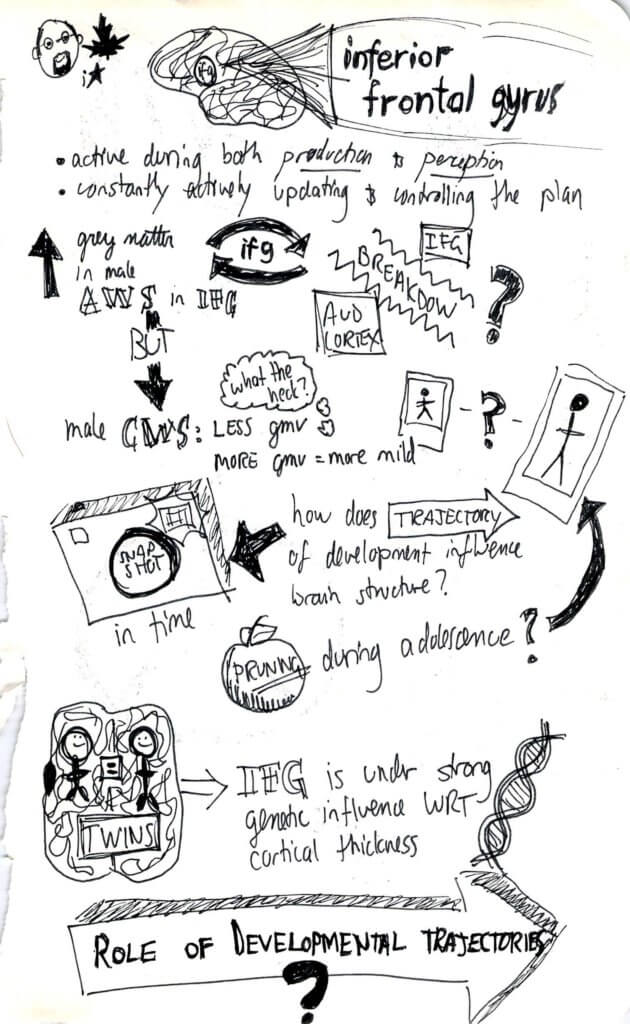 ifg
inferior
frontal gyrus
• active during both production & perception
• constantly actively updating & controlling the plan
grey matter
in male
AWS in IFG
ifg
IFG
BREAKDOW
AUD
CORTEX
?
BUT
what the
heck?
male CWS: LESS gmv
MORE gmv = more mild
- ? -
how does TRAJECTORY
of development influence
brain structure?
SNAP
SHOT
in time
PRUNING during adolescence?
TWINS
IFG is under strong
genetic influence WRT
cortical thickness
ROLE OF DEVELOPMENTAL TRAJECTORIES
?